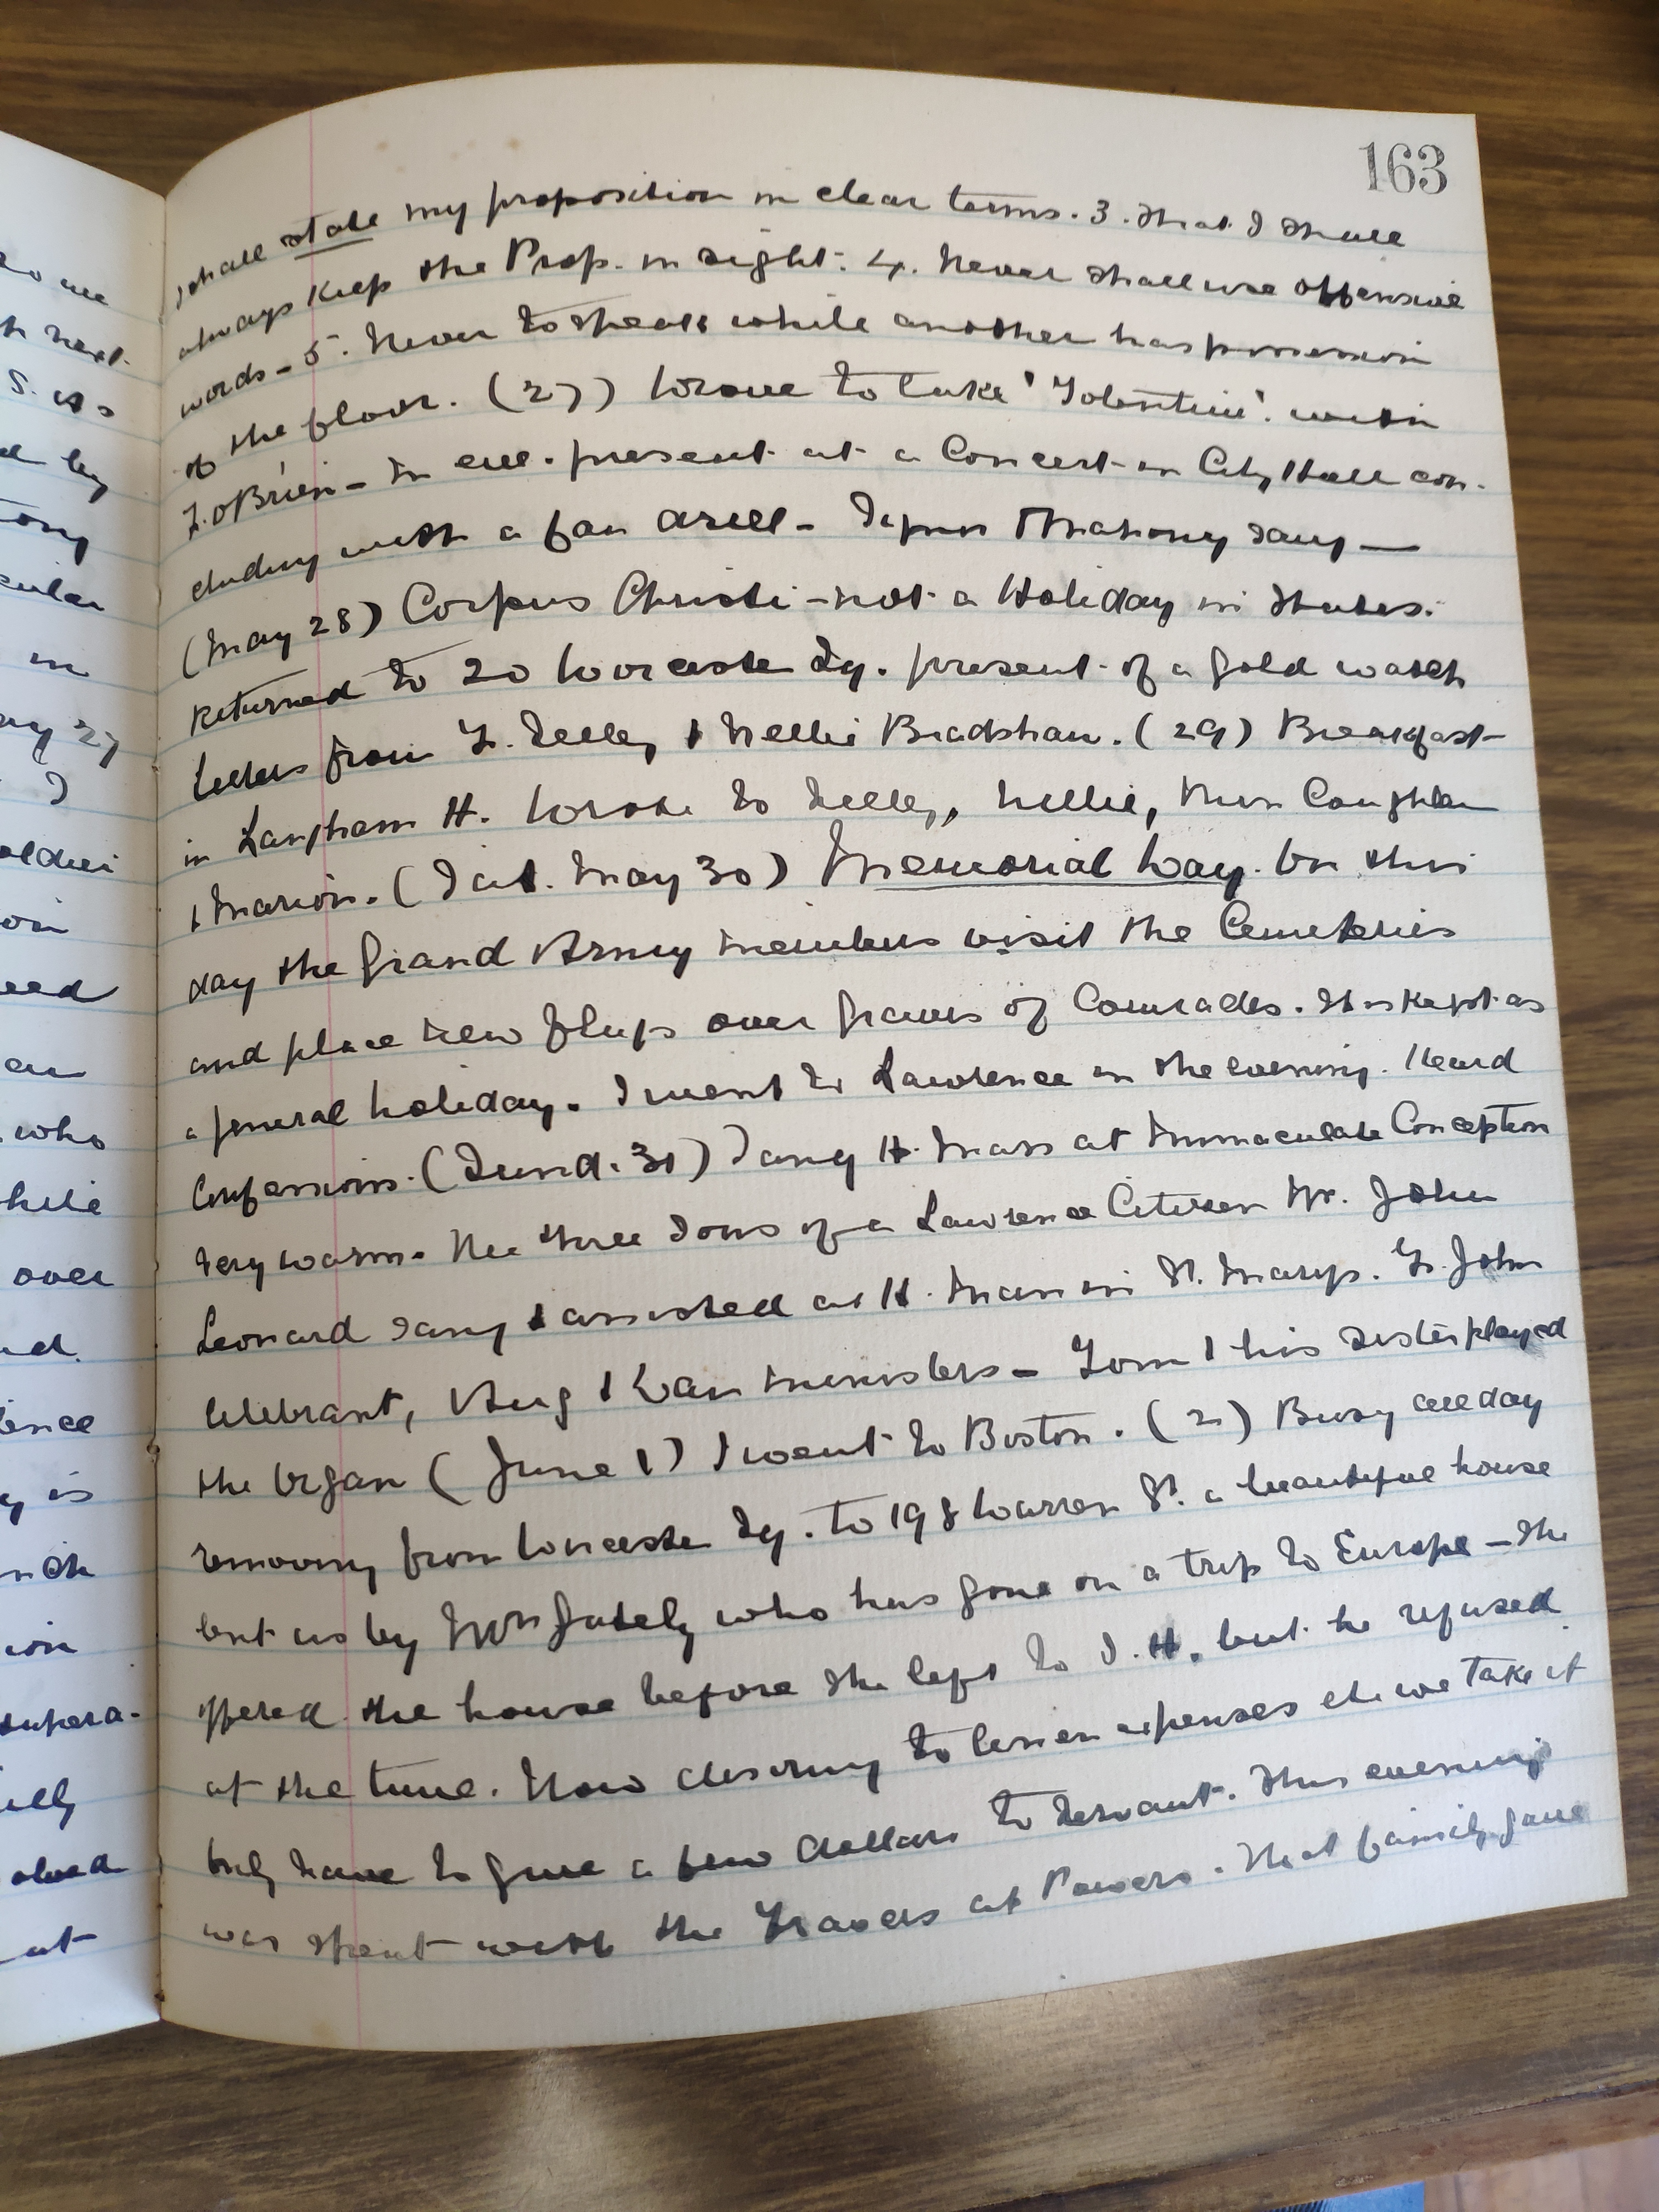 163
shall state my proposition in clear terms. 3. That I shall
always keep the Prop. in sight. 4. Never shall use offensive
words - 5. Never to speak while another has possession
of the floor. (27) Drove to lake 'Tolentine' with
F. O'Brien - In eve. present at a Concert in City Hall con-
cluding with a fan drill - Mahony sang -
(May 28) Corpus Christi - not a Holiday in States.
Returned to 20 Worcester Sq. present of a gold watch
Letters from F. Kelley & Nellie Bradshaw. (29) Breakfast
in Langham H. Wrote to Nellie, Miss Coughlan
& Marion. (Sat. May 30) Memorial Day. On this
day the Grand Army members visit the Cemeteries
and place new flags over graves of Comrades. It is kept as
a general holiday. I went to Lawrence in the evening. Heard
Confessions. (Sund. 31) Sang H. Mass at Immaculate Conception
Very warm. The three Sons of a Lawrence Citizen Mr. John
Leonard sang & assisted at H. Mass in St. Marys. F. John
Celebrant, Aug & Dan ministers - Tom & his sister played
the Organ (June 1) I went to Boston. (2) Busy all day
removing from Worcester Sq. to 198 Warren St. a beautiful house
lent us by Mrs Gately who has gone on a trip to Europe - She
offered the house before she left to I. H. but he refused
at the time. Now desiring to lessen expenses etc we take it
only have to give a few dollars to servant. This evening
was spent with the Travers at Powers. That family gave